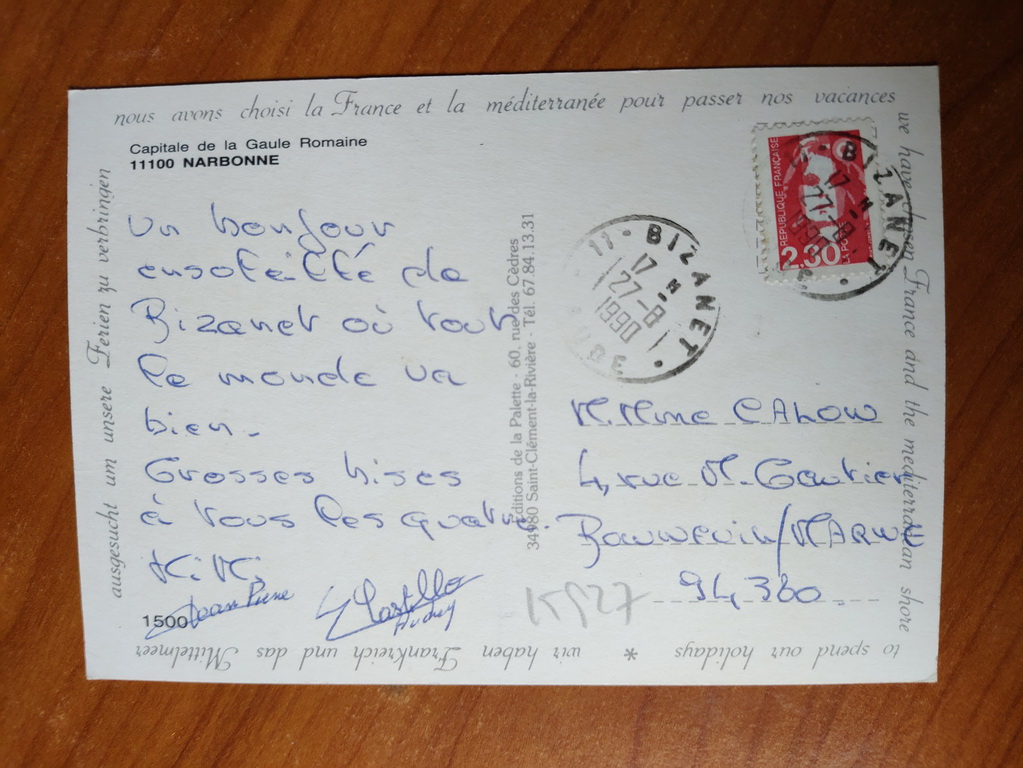 nous avons choisi la France et la méditerranée pour passer nos vacances
we have chosen France and the mediterranean shore
to spend our holidays * wir haben Frankreich und das Mittelmeer
ausgesucht um unsere Ferien zu verbringen
Capitale de la Gaule Romaine
11100 NARBONNE
Un bonjour
ensoleillé de
Bizanet où tout
le monde va
bien.
Grosses bises
à tous les quatre.
KiKi
Jean Pierre
Castillo
Audrey
1500
Editions de la Palette - 60, rue des Cèdres
34980 Saint-Clément-la-Rivière - Tél. 67.84.13.31
REPUBLIQUE FRANÇAISE
2.30
LA POSTE
11 - BIZANET
17 H
27-8
1990
AUDE
11 - BIZANET
17 H
27-8
1990
M. Mme CALOW
4, rue M. Gautier
94,380
15927